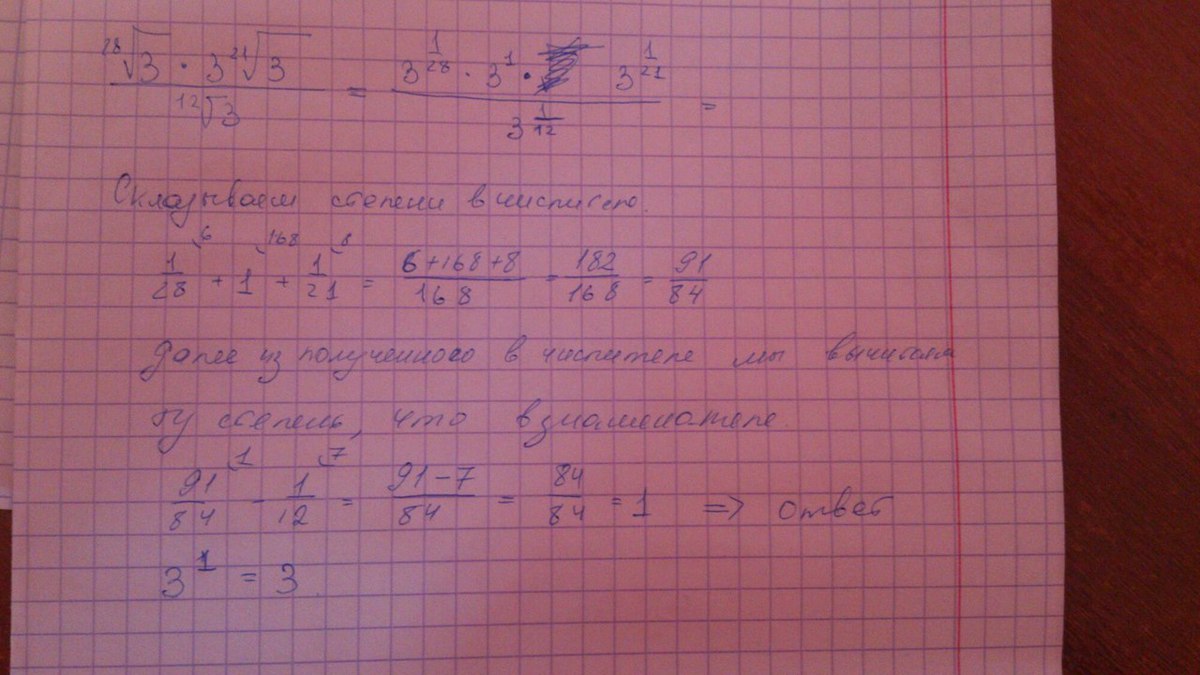 ²⁸√3 · 3 ²¹√3 / ¹²√3 = 3^(1/28) · 3^1 · 3^(1/21) / 3^(1/12) =
Складываем степени в числителе.
1/28 (6) + 1 (168) + 1/21 (8) = (6+168+8)/168 = 182/168 = 91/84
Далее из полученного в числителе мы вычитаем
ту степень, что в знаменателе.
91/84 (1) - 1/12 (7) = (91-7)/84 = 84/84 = 1 => ответ
3^1 = 3.